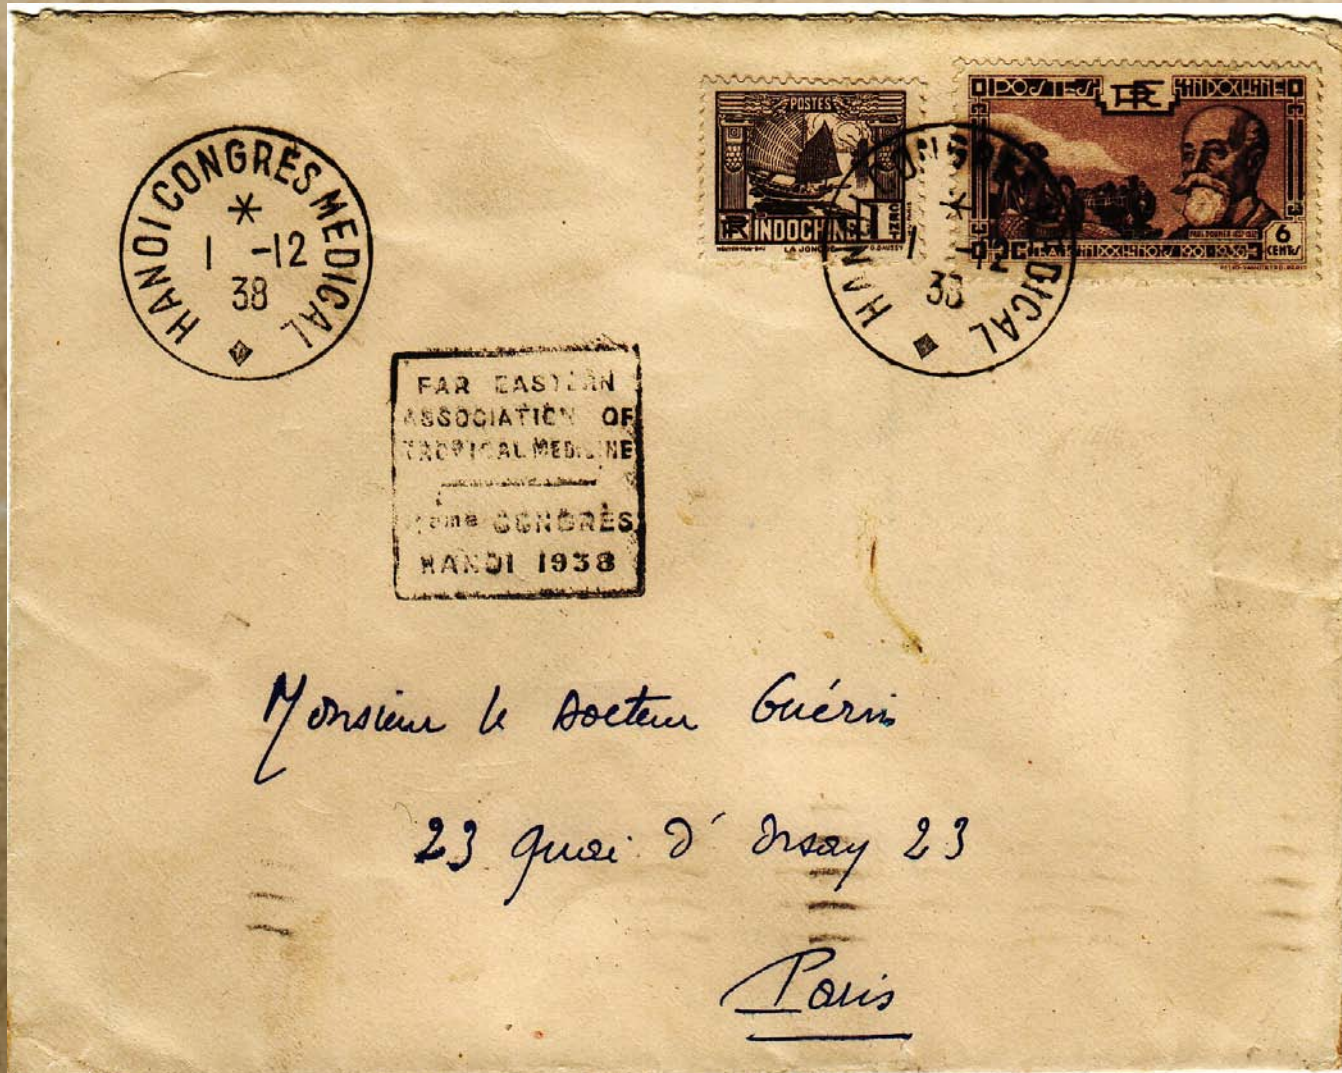 HANOI CONGRÈS MEDICAL
1 -12
38
POSTES
RF INDOCHINE
POSTES RF INDOCHINE
6
CENTS
HANOI CONGRÈS MEDICAL
1 -12
38
FAR EASTERN
ASSOCIATION OF
TROPICAL MEDICINE
ème CONGRÈS
HANOI 1938
Monsieur le Docteur Guérin
23 quai d'Orsay 23
Paris